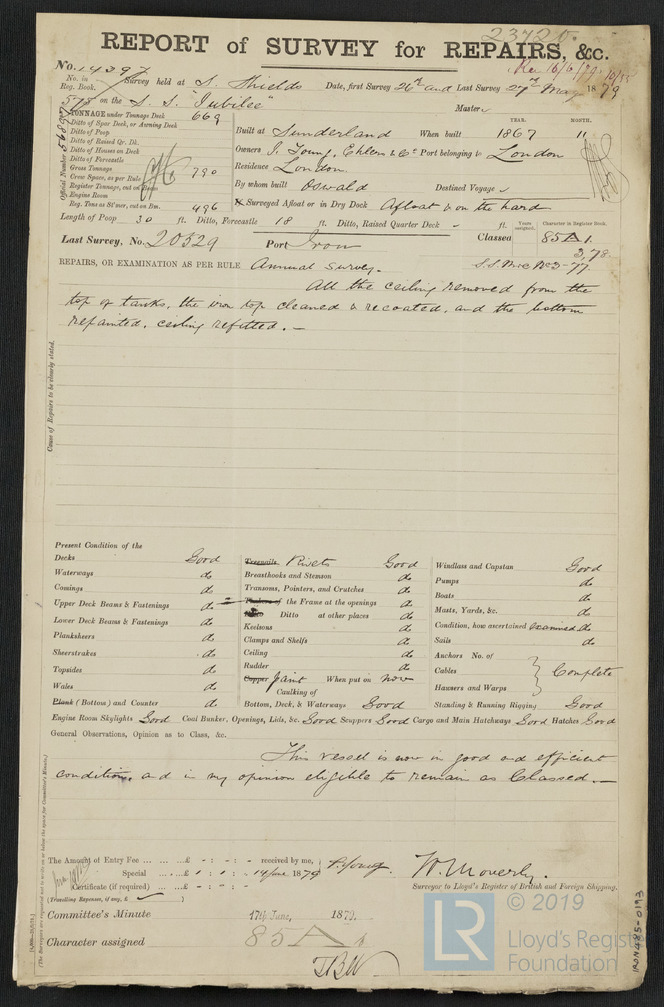 23720.
REPORT of SURVEY for REPAIRS, &c.
No. 14297
No. in Reg. Book. Survey held at S. Shields Date, first Survey 26th and Last Survey 27th May 1879
575 on the S. S. "Jubilee" Master
TONNAGE under Tonnage Deck 669
Ditto of Spar Deck, or Awning Deck
Ditto of Poop
Ditto of Raised Qr. Dk.
Ditto of Houses on Deck
Ditto of Forecastle
Gross Tonnage 790
Crew Space, as per Rule
Register Tonnage, cut on Beam
Engine Room
Reg. Tons as St'mer, cut on Bm. 496
Official Number 56897
YEAR. MONTH.
Built at Sunderland When built 1867 11
Owners J. Young, Ehlers & Co. Port belonging to London
Residence London.
By whom built Oswald Destined Voyage
Surveyed Afloat or in Dry Dock Afloat & on the hard
Length of Poop 30 ft. Ditto, Forecastle 18 ft. Ditto, Raised Quarter Deck - ft.
Years assigned. Character in Register Book.
Last Survey, No. 20529 Port Iron Classed 85 A 1.
3,78
S.S. No 2-77
REPAIRS, OR EXAMINATION AS PER RULE Annual Survey.
All the ceiling removed from the
top of tanks, the iron top cleaned & recoated, and the bottom
repainted, ceiling refitted. —
Cause of Repairs to be clearly stated.
Present Condition of the
Decks Good
Waterways do
Comings do
Upper Deck Beams & Fastenings do
Lower Deck Beams & Fastenings do
Planksheers do
Sheerstrakes do
Topsides do
Wales do
Plank (Bottom) and Counter do
Treenails Rivets Good
Breasthooks and Stemson do
Transoms, Pointers, and Crutches do
Timbers of the Frame at the openings do
Ditto at other places do
Keelsons do
Clamps and Shelfs do
Ceiling do
Rudder do
Copper Paint When put on now
Caulking of
Bottom, Deck, & Waterways Good
Windlass and Capstan Good
Pumps do
Boats do
Masts, Yards, &c. do
Condition, how ascertained examined do
Sails do
Anchors No. of
Cables Complete
Hausers and Warps
Standing & Running Rigging Good
Engine Room Skylights Good Coal Bunker, Openings, Lids, &c. Good Scuppers Good Cargo and Main Hatchways Good Hatches Good
General Observations, Opinion as to Class, &c.
This vessel is now in good and efficient
condition, and in my opinion eligible to remain as Classed. —
The Amount of Entry Fee ... ... £ - : - : - received by me,
Special ... ... £ 1 : 1 : - 14 June 1879
Certificate (if required) ... £ - : - : -
(Travelling Expenses, if any, £ )
W. Mowerly.
Surveyor to Lloyd's Register of British and Foreign Shipping.
Committee's Minute 17th June, 1879.
Character assigned 85 A 1
TBW
IRON485-0193
© 2019
LR
Lloyd's Register
Foundation